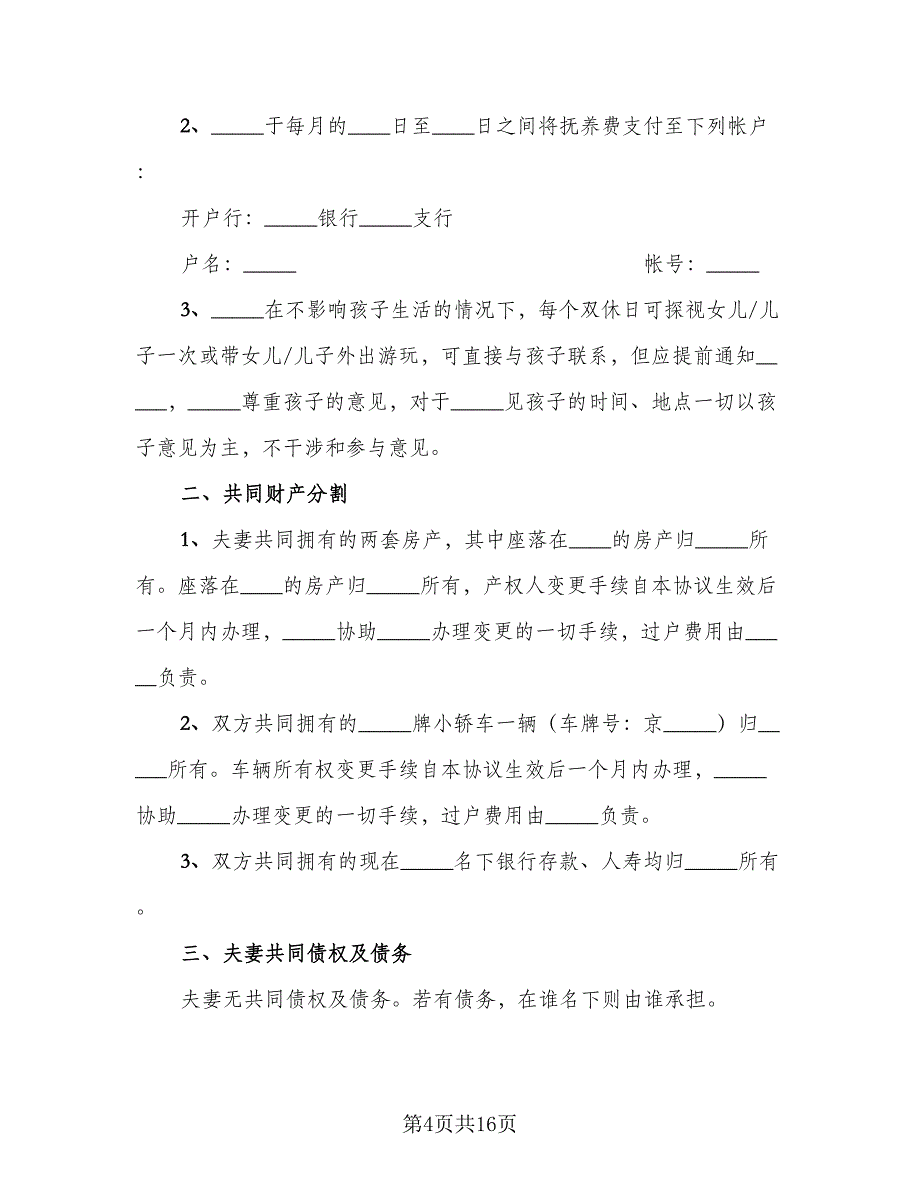 2、_____于每月的____日至____日之间将抚养费支付至下列帐户
：
开户行：_____银行_____支行
户名：_____ 帐号：_____
3、_____在不影响孩子生活的情况下，每个双休日可探视女儿/儿
子一次或带女儿/儿子外出游玩，可直接与孩子联系，但应提前通知__
___，_____尊重孩子的意见，对于_____见孩子的时间、地点一切以孩
子意见为主，不干涉和参与意见。
二、共同财产分割
1、夫妻共同拥有的两套房产，其中座落在____的房产归_____所
有。座落在____的房产归_____所有，产权人变更手续自本协议生效后
一个月内办理，_____协助_____办理变更的一切手续，过户费用由___
__负责。
2、双方共同拥有的_____牌小轿车一辆（车牌号：京_____）归__
___所有。车辆所有权变更手续自本协议生效后一个月内办理，_____
协助_____办理变更的一切手续，过户费用由_____负责。
3、双方共同拥有的现在_____名下银行存款、人寿均归_____所有
。
三、夫妻共同债权及债务
夫妻无共同债权及债务。若有债务，在谁名下则由谁承担。
第4页共16页